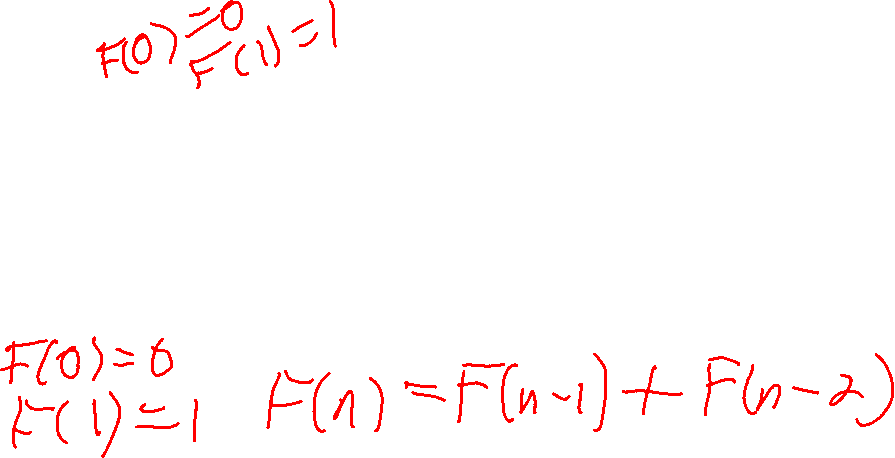 F(0)=0
F(1)=1
F(0)=0
F(1)=1
F(n)=F(n-1)+F(n-2)